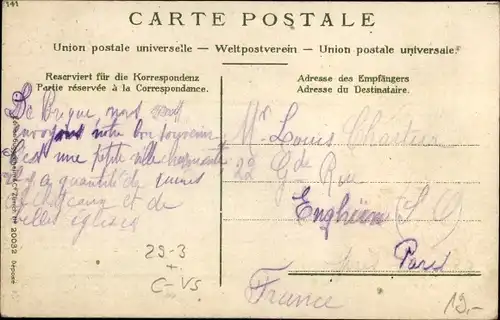 141
CARTE POSTALE
Union postale universelle — Weltpostverein — Union postale universale.
Reserviert für die Korrespondenz
Partie réservée à la Correspondance.
Adresse des Empfängers
Adresse du Destinataire.
De Brigue, nous
envoyons notre bon souvenir
C'est une petite ville charmante
Il y a quantité de ruines
de châteaux et de
belles églises
Mr Louis
22 Gde Rue
Enghien (S O)
Paris
France
29-3
C-VS
19.-
20032 Déposé